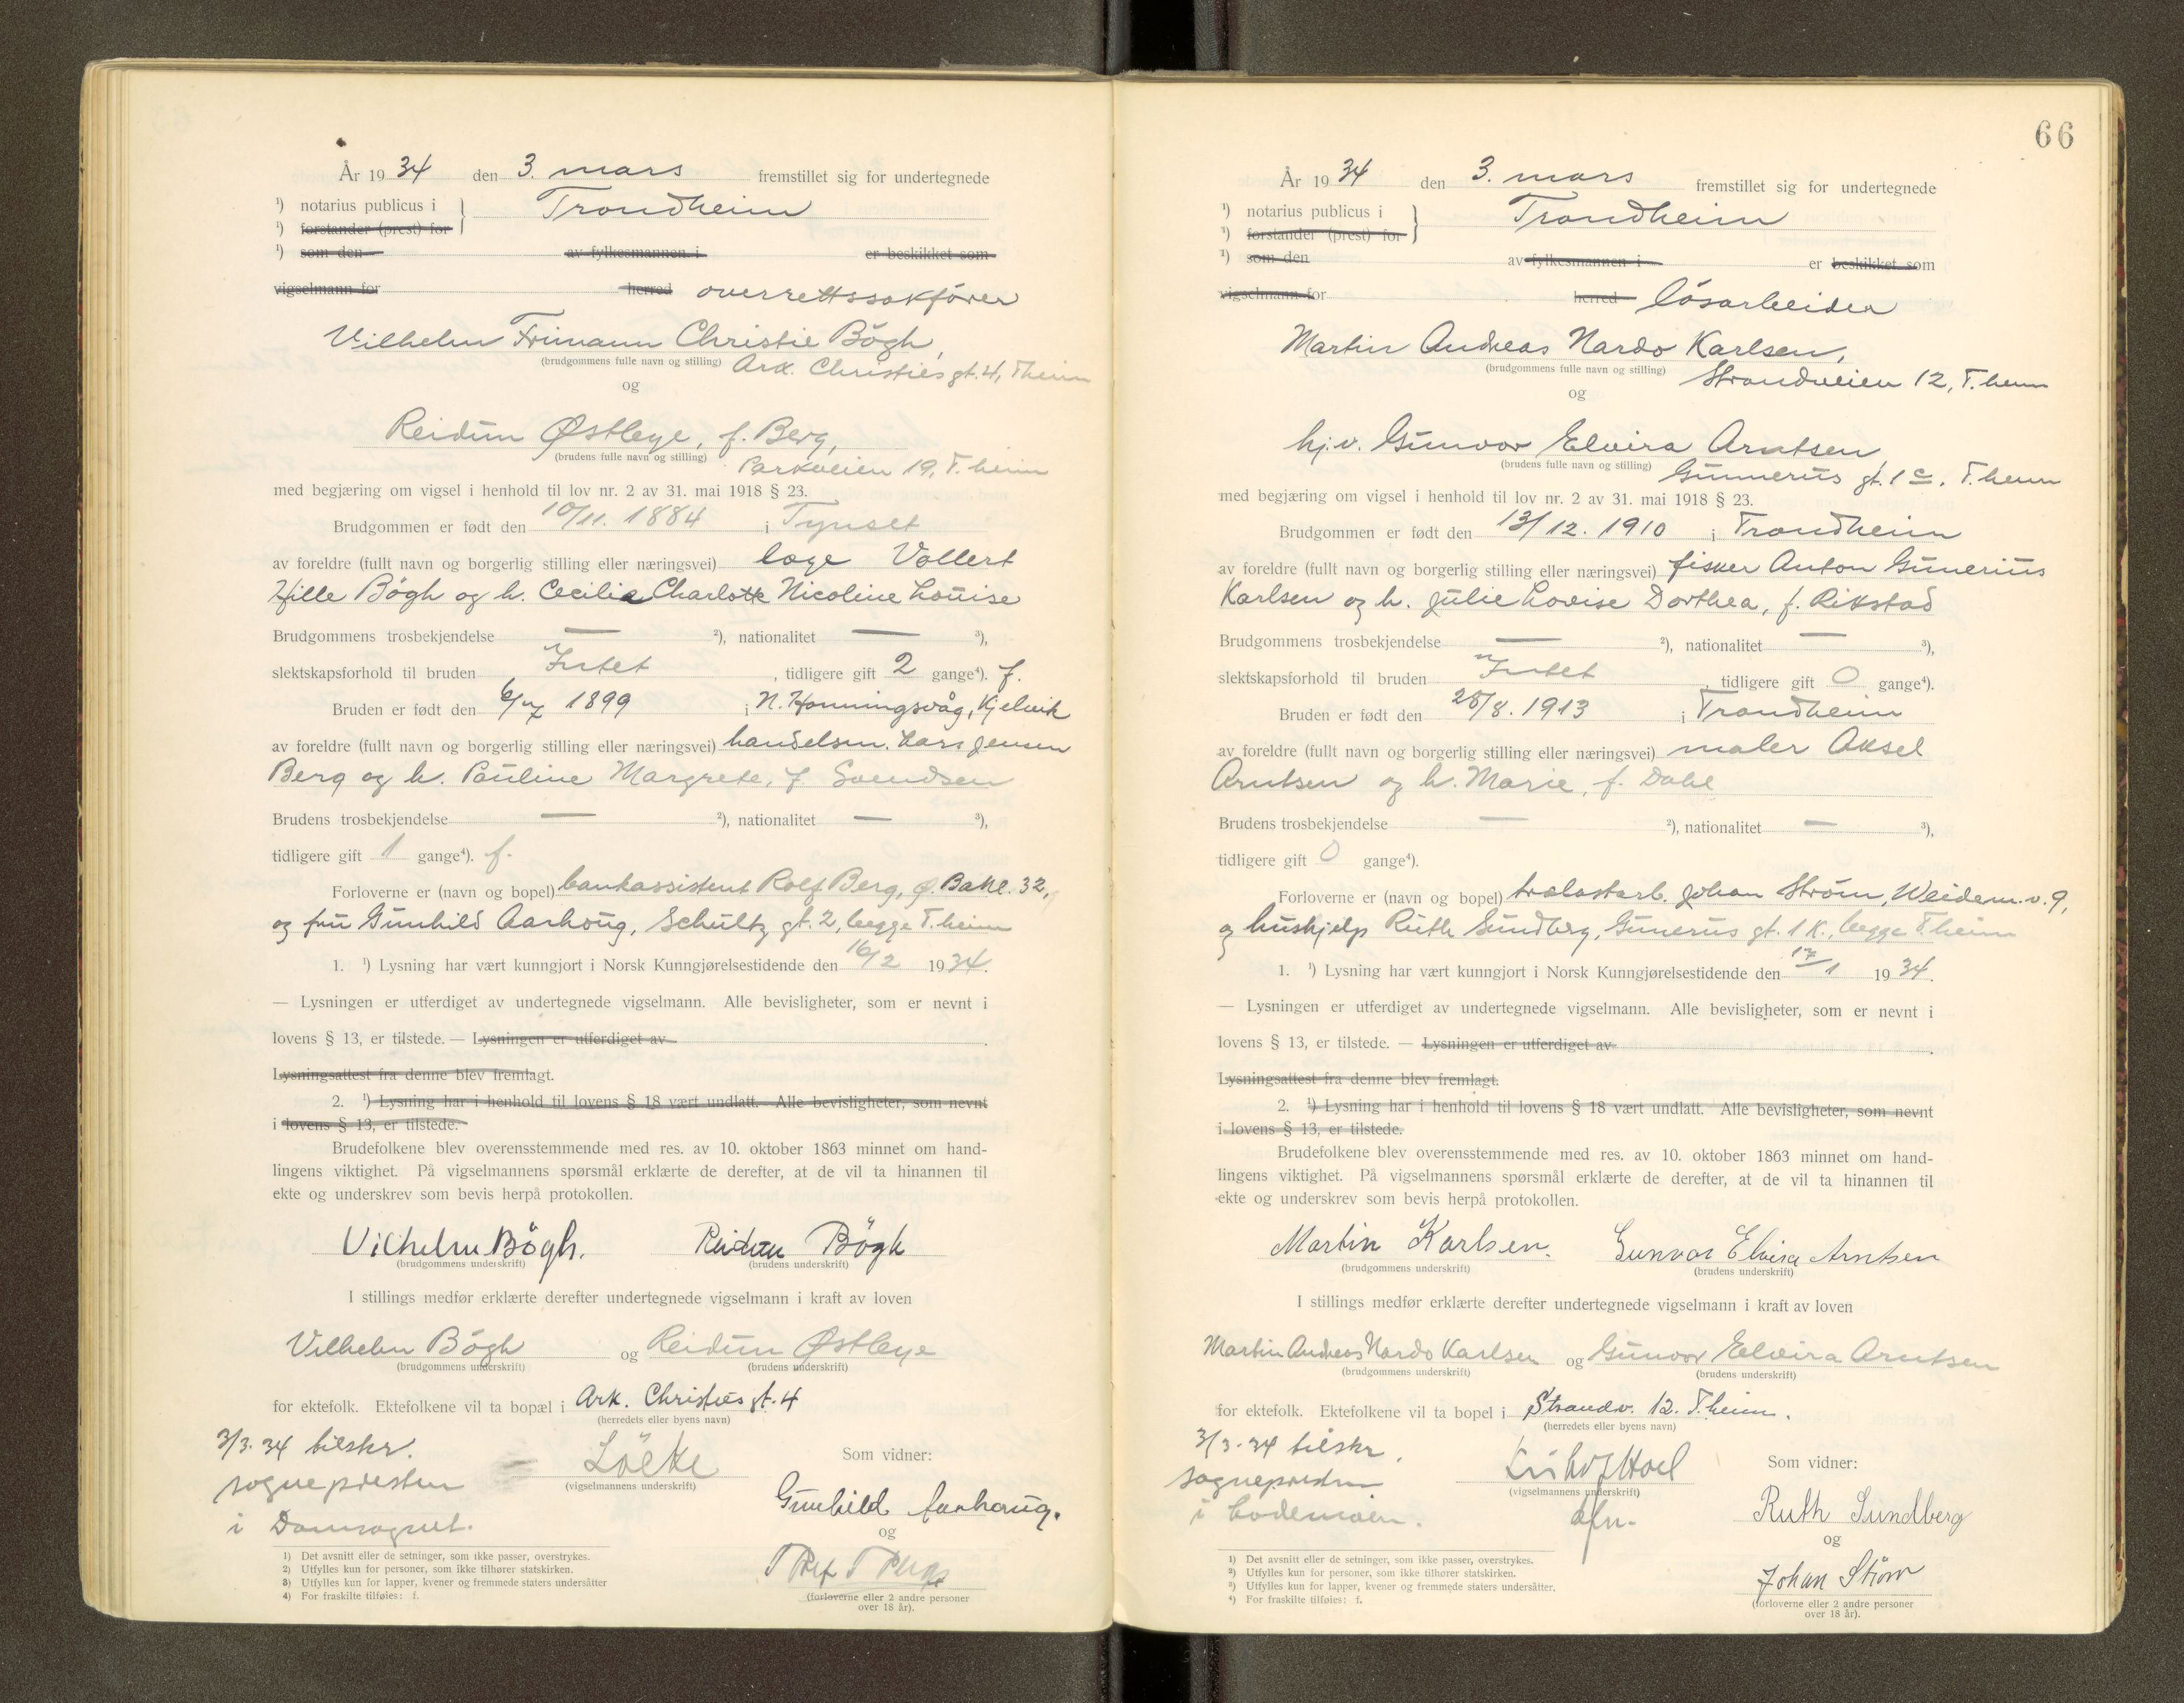 År 1934 den 3. mars fremstillet sig for undertegnede
¹) notarius publicus i } Trondheim
¹) forstander (prest) for
¹) som den av fylkesmannen i er beskikket som
vigselmann for herred overrettssakfører
Vilhelm Frimann Christie Bögh,
(brudgommens fulle navn og stilling) Ark. Christies gt. 4, T.heim
og
Reidun Østleye, f. Berg,
(brudens fulle navn og stilling) Parkveien 19, T.heim
med begjæring om vigsel i henhold til lov nr. 2 av 31. mai 1918 § 23.
Brudgommen er født den 10/11. 1884 i Tynset
av foreldre (fullt navn og borgerlig stilling eller næringsvei) læge Vollert
Hille Bögh og h. Cecilia Charlotte Nicoline Louise
Brudgommens trosbekjendelse — ²), nationalitet — ³),
slektskapsforhold til bruden Intet, tidligere gift 2 gange⁴). f.
Bruden er født den 6/7 1899 i N. Honningsvåg, Kjelvik
av foreldre (fullt navn og borgerlig stilling eller næringsvei) handelsm. Lars Jensen
Berg og h. Pauline Margrete, f. Svendsen
Brudens trosbekjendelse — ²), nationalitet — ³),
tidligere gift 1 gange⁴). f.
Forloverne er (navn og bopel) bankassistent Rolf Berg, Ø. Bakl. 32,
og fru Gunhild Aarhoug, Schultz gt. 2, begge T.heim
1. ¹) Lysning har vært kunngjort i Norsk Kunngjørelsestidende den 16/2 1934.
— Lysningen er utferdiget av undertegnede vigselmann. Alle bevisligheter, som er nevnt i
lovens § 13, er tilstede. — Lysningen er utferdiget av .
Lysningsattest fra denne blev fremlagt.
2. ¹) Lysning har i henhold til lovens § 18 vært undlatt. Alle bevisligheter, som nevnt
i lovens § 13, er tilstede.
Brudefolkene blev overensstemmende med res. av 10. oktober 1863 minnet om hand-
lingens viktighet. På vigselmannens spørsmål erklærte de derefter, at de vil ta hinannen til
ekte og underskrev som bevis herpå protokollen.
Vilhelm Bögh. Reidun Bögh
(brudgommens underskrift) (brudens underskrift)
I stillings medfør erklærte derefter undertegnede vigselmann i kraft av loven
Vilhelm Bögh og Reidun Østleye
(brudgommens underskrift) (brudens underskrift)
for ektefolk. Ektefolkene vil ta bopæl i Ark. Christies gt. 4
(herredets eller byens navn)
3/3. 34 tilskr.
sognepresten
i Domsognet.
Löcke
(vigselmannens underskrift)
Som vidner:
Gunhild Aarhoug.
og
(forloverne eller 2 andre personer
over 18 år).
1) Det avsnitt eller de setninger, som ikke passer, overstrykes.
2) Utfylles kun for personer, som ikke tilhører statskirken.
3) Utfylles kun for lapper, kvener og fremmede staters undersåtter
4) For fraskilte tilføies: f.
66
År 1934 den 3. mars fremstillet sig for undertegnede
¹) notarius publicus i } Trondheim
¹) forstander (prest) for
¹) som den av fylkesmannen i er beskikket som
vigselmann for herred løsarbeider
Martin Andreas Nardo Karlsen,
(brudgommens fulle navn og stilling) Strandveien 12, T.heim
og
hj.v. Gunvor Elvira Arntsen
(brudens fulle navn og stilling) Gunnerus gt. 1 c, T.heim
med begjæring om vigsel i henhold til lov nr. 2 av 31. mai 1918 § 23.
Brudgommen er født den 13/12. 1910 i Trondheim
av foreldre (fullt navn og borgerlig stilling eller næringsvei) fisker Anton Gunerius
Karlsen og h. Julie Lovise Dorthea, f. Rikstad
Brudgommens trosbekjendelse — ²), nationalitet — ³),
slektskapsforhold til bruden Intet, tidligere gift 0 gange⁴).
Bruden er født den 28/8. 1913 i Trondheim
av foreldre (fullt navn og borgerlig stilling eller næringsvei) maler Aksel
Arntsen og h. Marie, f. Dahl
Brudens trosbekjendelse — ²), nationalitet — ³),
tidligere gift 0 gange⁴).
Forloverne er (navn og bopel) trælastarb. Johan Strøm, Weidem.v. 9,
og hushjelp Ruth Sundberg, Gunerus gt. 1 K., begge T.heim
1. ¹) Lysning har vært kunngjort i Norsk Kunngjørelsestidende den 17/1 1934.
— Lysningen er utferdiget av undertegnede vigselmann. Alle bevisligheter, som er nevnt i
lovens § 13, er tilstede. — Lysningen er utferdiget av .
Lysningsattest fra denne blev fremlagt.
2. ¹) Lysning har i henhold til lovens § 18 vært undlatt. Alle bevisligheter, som nevnt
i lovens § 13, er tilstede.
Brudefolkene blev overensstemmende med res. av 10. oktober 1863 minnet om hand-
lingens viktighet. På vigselmannens spørsmål erklærte de derefter, at de vil ta hinannen til
ekte og underskrev som bevis herpå protokollen.
Martin Karlsen. Gunvor Elvira Arntsen
(brudgommens underskrift) (brudens underskrift)
I stillings medfør erklærte derefter undertegnede vigselmann i kraft av loven
Martin Andreas Nardo Karlsen og Gunvor Elvira Arntsen
(brudgommens underskrift) (brudens underskrift)
for ektefolk. Ektefolkene vil ta bopel i Strandv. 12. T.heim.
(herredets eller byens navn)
3/3. 34 tilskr.
sognepresten
i Lademoen.
(vigselmannens underskrift)
Som vidner:
Ruth Sundberg
og
Johan Strøm
(forloverne eller 2 andre personer
over 18 år).
¹) Det avsnitt eller de setninger, som ikke passer, overstrykes.
²) Utfylles kun for personer, som ikke tilhører statskirken.
³) Utfylles kun for lapper, kvener og fremmede staters undersåtter.
⁴) For fraskilte tilføies: f.